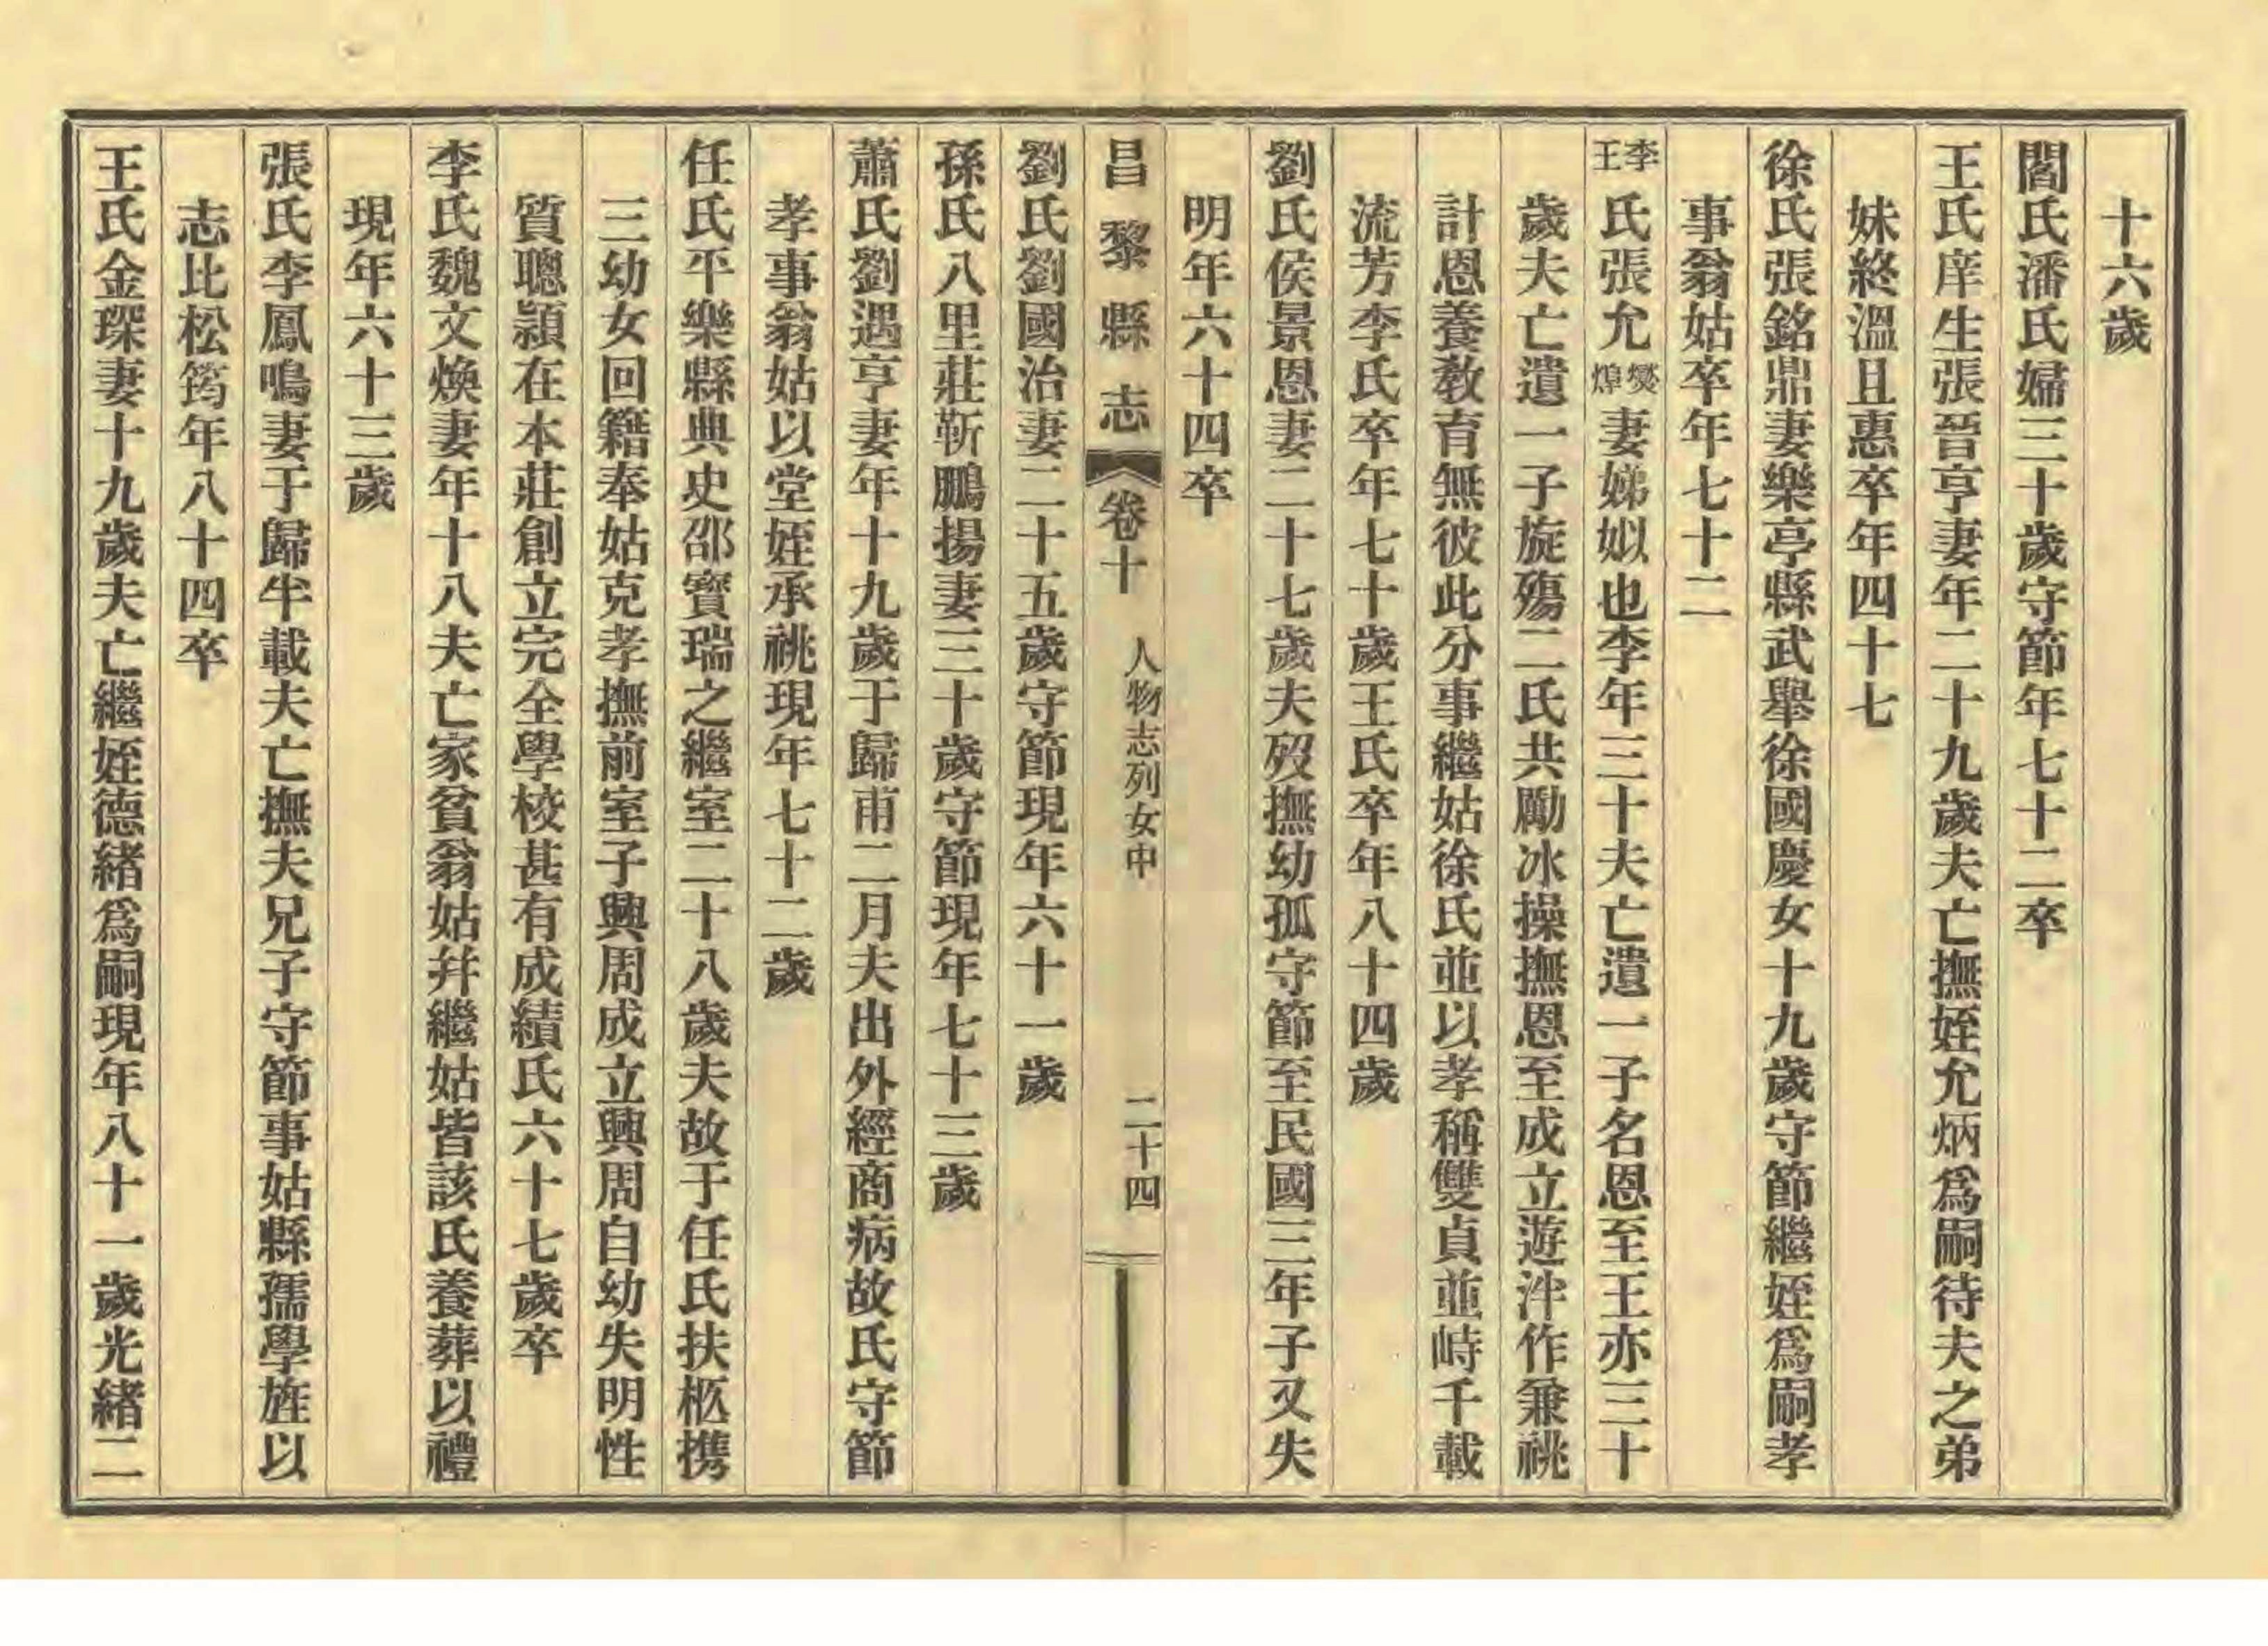 十六歲
閻氏潘氏婦三十歲守節年七十二卒
王氏庠生張晉亨妻年二十九歲夫亡撫姪允炳爲嗣待夫之弟
妹終溫且惠卒年四十七
徐氏張銘鼎妻樂亭縣武舉徐國慶女十九歲守節繼姪爲嗣孝
事翁姑卒年七十二
李王氏張允燮煒妻娣姒也李年三十夫亡遺一子名恩至王亦三十
歲夫亡遺一子旋殤二氏共勵冰操撫恩至成立遊泮作兼祧
計恩養教育無彼此分事繼姑徐氏並以孝稱雙貞並峙千載
流芳李氏卒年七十歲王氏卒年八十四歲
劉氏侯景恩妻二十七歲夫歿撫幼孤守節至民國三年子又失
明年六十四卒
昌黎縣志 卷十 人物志列女中 二十四
劉氏劉國治妻二十五歲守節現年六十一歲
孫氏八里莊靳鵬揚妻三十歲守節現年七十三歲
蕭氏劉遇亨妻年十九歲于歸甫二月夫出外經商病故氏守節
孝事翁姑以堂姪承祧現年七十二歲
任氏平樂縣典史邵寶瑞之繼室二十八歲夫故于任氏扶柩携
三幼女回籍奉姑克孝撫前室子興周成立興周自幼失明性
質聰穎在本莊創立完全學校甚有成績氏六十七歲卒
李氏魏文煥妻年十八夫亡家貧翁姑幷繼姑皆該氏養葬以禮
現年六十三歲
張氏李鳳鳴妻于歸半載夫亡撫夫兄子守節事姑縣孺學旌以
志比松筠年八十四卒
王氏金琛妻十九歲夫亡繼姪德緒爲嗣現年八十一歲光緒二